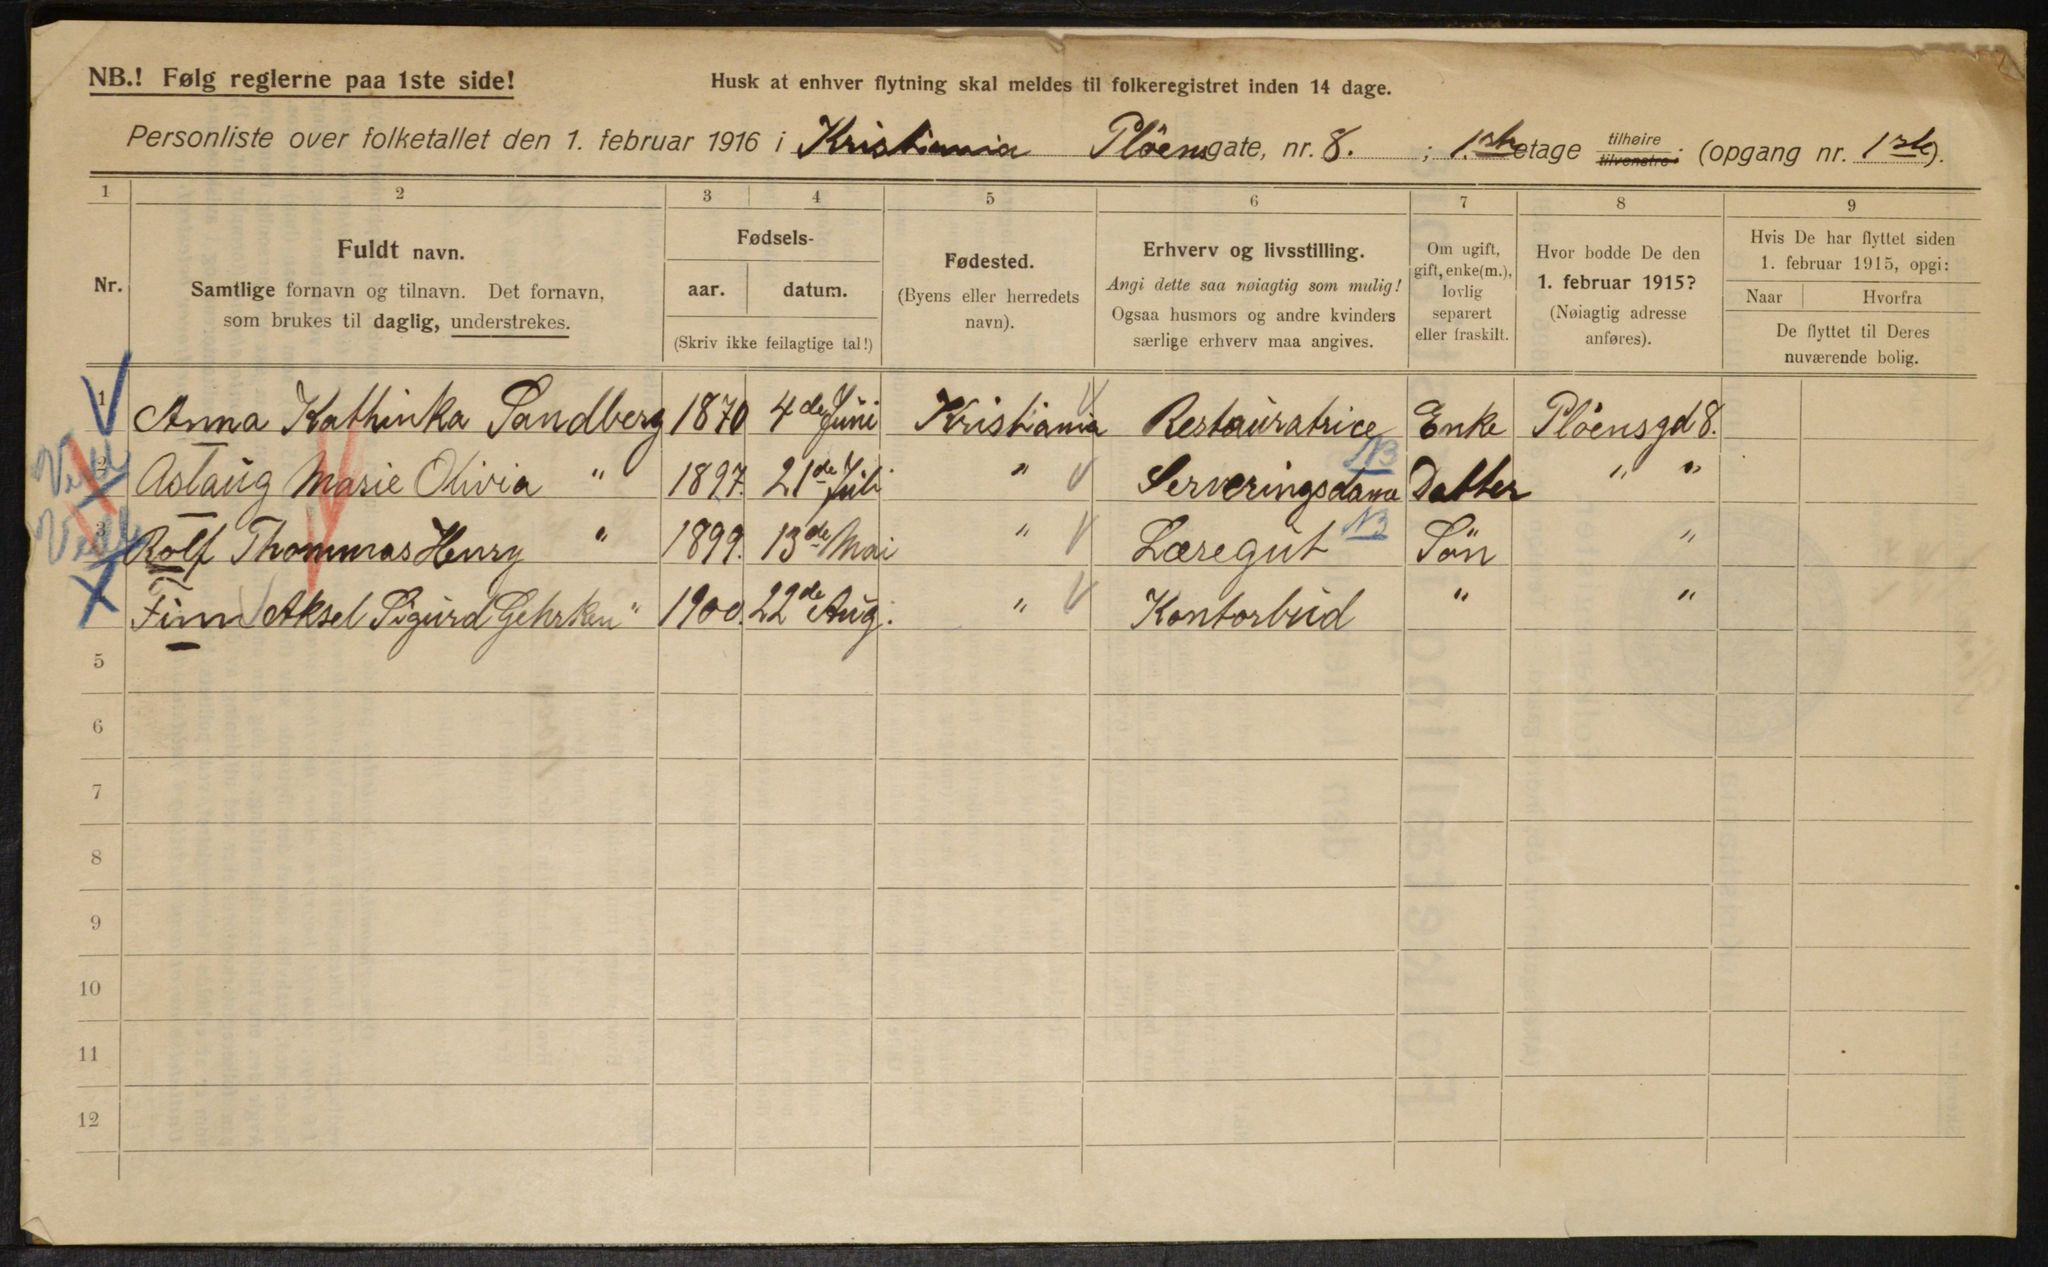 NB.! Følg reglerne paa 1ste side!
Husk at enhver flytning skal meldes til folkeregistret inden 14 dage.
Personliste over folketallet den 1. februar 1916 i Kristiania Pløensgate, nr. 8. ; 1.ste etage tilhøire tilvenstre. (opgang nr. 1ste).
1 2 3 4 5 6 7 8 9
Nr.
Fuldt navn.
Samtlige fornavn og tilnavn. Det fornavn,
som brukes til daglig, understrekes.
Fødsels-
aar. datum.
(Skriv ikke feilagtige tal!)
Fødested.
(Byens eller herredets
navn).
Erhverv og livsstilling.
Angi dette saa nøiagtig som mulig!
Ogsaa husmors og andre kvinders
særlige erhverv maa angives.
Om ugift,
gift, enke(m.),
lovlig
separert
eller fraskilt.
Hvor bodde De den
1. februar 1915?
(Nøiagtig adresse
anføres).
Hvis De har flyttet siden
1. februar 1915, opgi:
Naar Hvorfra
De flyttet til Deres
nuværende bolig.
1 Anna Kathinka Sandberg 1870 4de Juni Kristiania Restauratrice Enke Pløensgd 8.
2 Aslaug Marie Olivia " 1897. 21de Juli " Serveringsdame NB Datter " "
3 Rolf Thommas Henry " 1899. 13de Mai " Læregut NB Søn "
Finn Aksel Sigurd Gehrken " 1900. 22de Aug. " Kontorbud " "
5
6
7
8
9
10
11
12